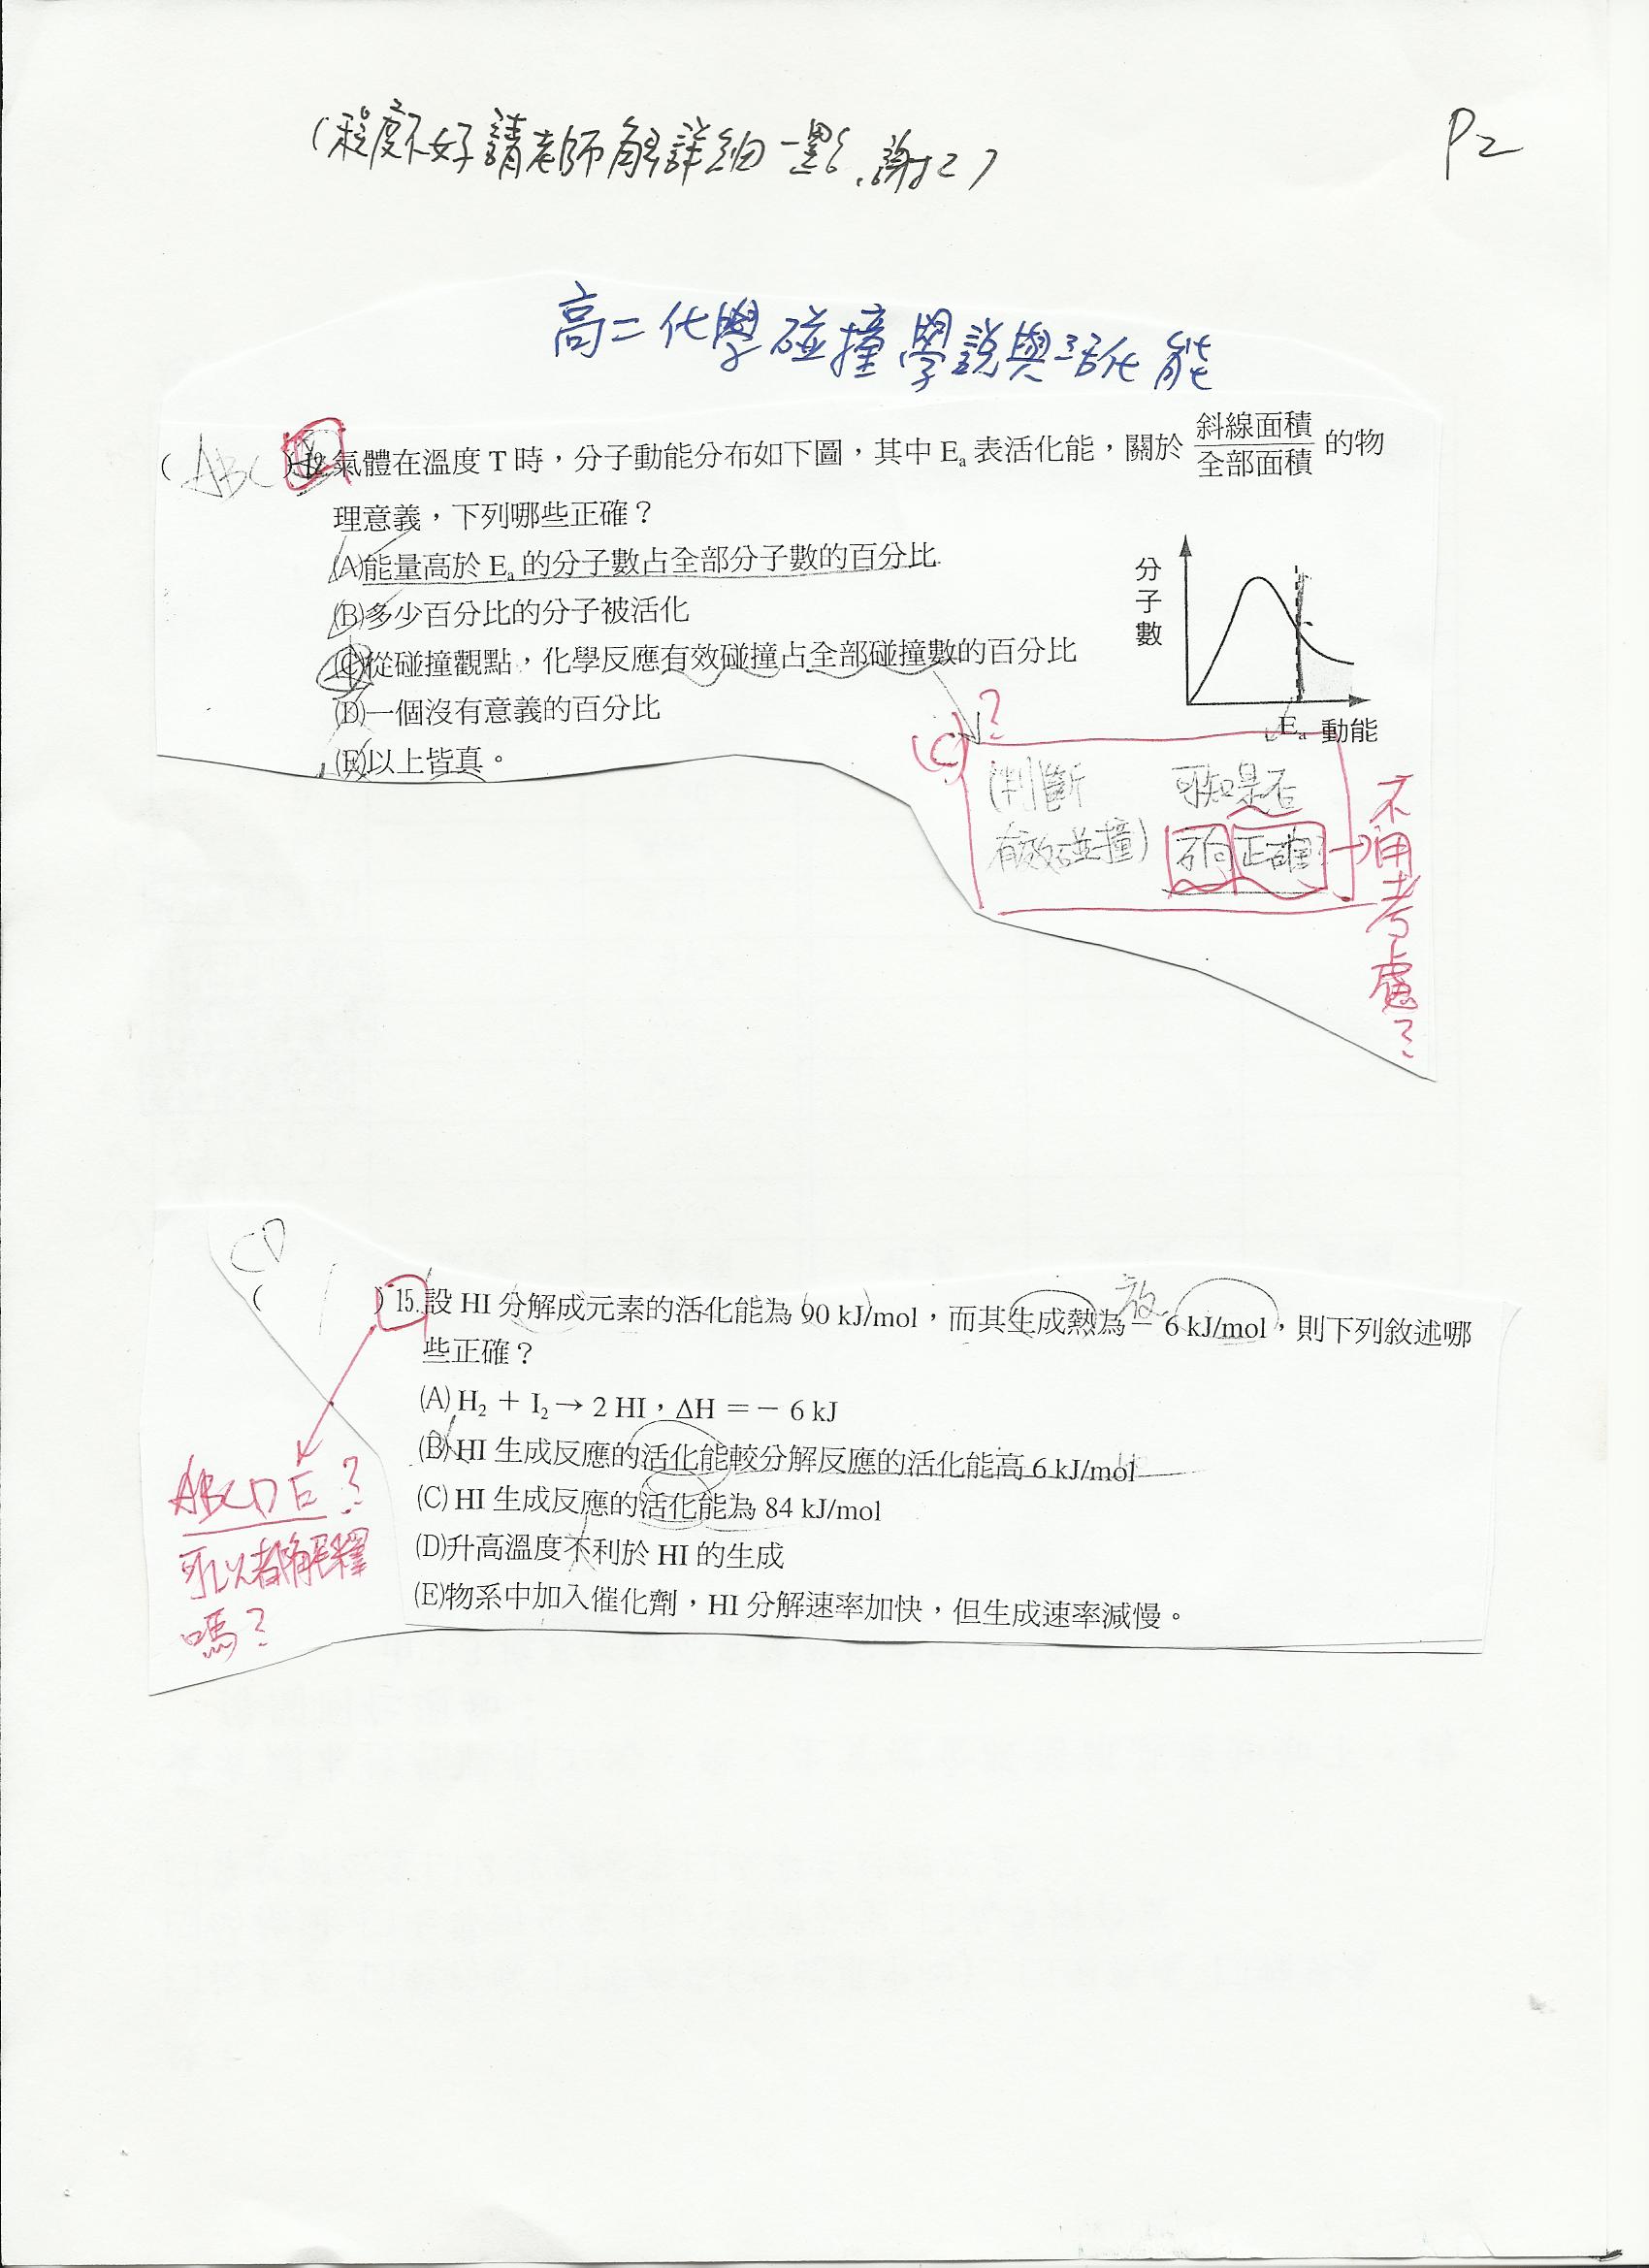 (程度不好請老師解詳細一點,謝謝)
P2
高二化學碰撞學說與活化能
(ABC)12.氣體在溫度 T 時,分子動能分布如下圖,其中 Ea 表活化能,關於 斜線面積/全部面積 的物
理意義,下列哪些正確?
(A)能量高於 Ea 的分子數占全部分子數的百分比
(B)多少百分比的分子被活化
(C)從碰撞觀點,化學反應有效碰撞占全部碰撞數的百分比
(D)一個沒有意義的百分比
(E)以上皆真。
分子數
Ea 動能
(C)?
(判斷 可知是否
有效碰撞) 方向正確?
不用考慮?
CD
( )15.設 HI 分解成元素的活化能為 90 kJ/mol,而其生成熱為 - 6 kJ/mol,則下列敘述哪
放
些正確?
(A) H2 + I2 → 2 HI,ΔH = - 6 kJ
(B) HI 生成反應的活化能較分解反應的活化能高 6 kJ/mol
(C) HI 生成反應的活化能為 84 kJ/mol
(D)升高溫度不利於 HI 的生成
(E)物系中加入催化劑,HI 分解速率加快,但生成速率減慢。
ABCDE?
可以都解釋
嗎?